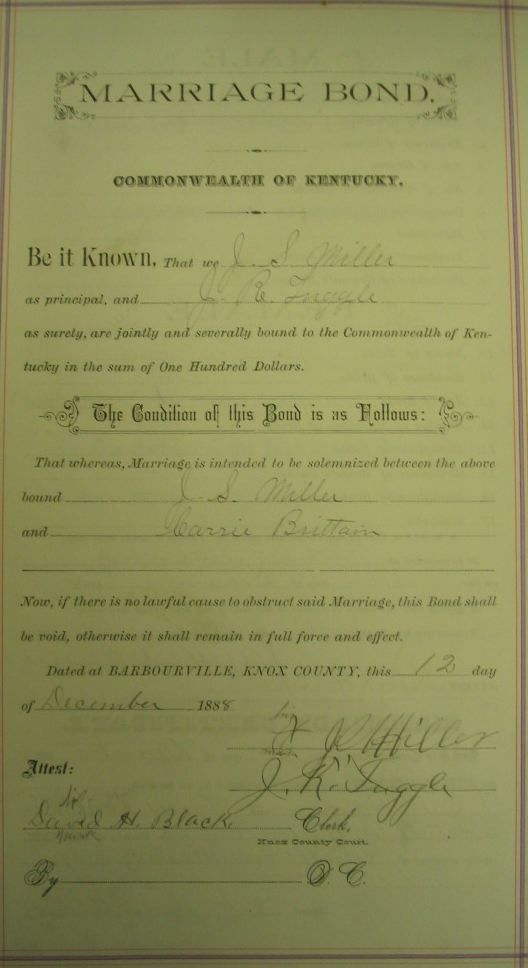 MARRIAGE BOND.
COMMONWEALTH OF KENTUCKY.
Be it Known, That we J. S. Miller
as principal, and J. R. Tuggle
as surety, are jointly and severally bound to the Commonwealth of Ken-
tucky in the sum of One Hundred Dollars.
The Condition of this Bond is as Follows:
That whereas, Marriage is intended to be solemnized between the above
bound J. S. Miller
and Carrie Brittain
Now, if there is no lawful cause to obstruct said Marriage, this Bond shall
be void, otherwise it shall remain in full force and effect.
Dated at BARBOURVILLE, KNOX COUNTY, this 12 day
of December 1888
Miller
Attest: J. R. Tuggle
David H. Black Clerk,
Knox County Court.
By D. C.